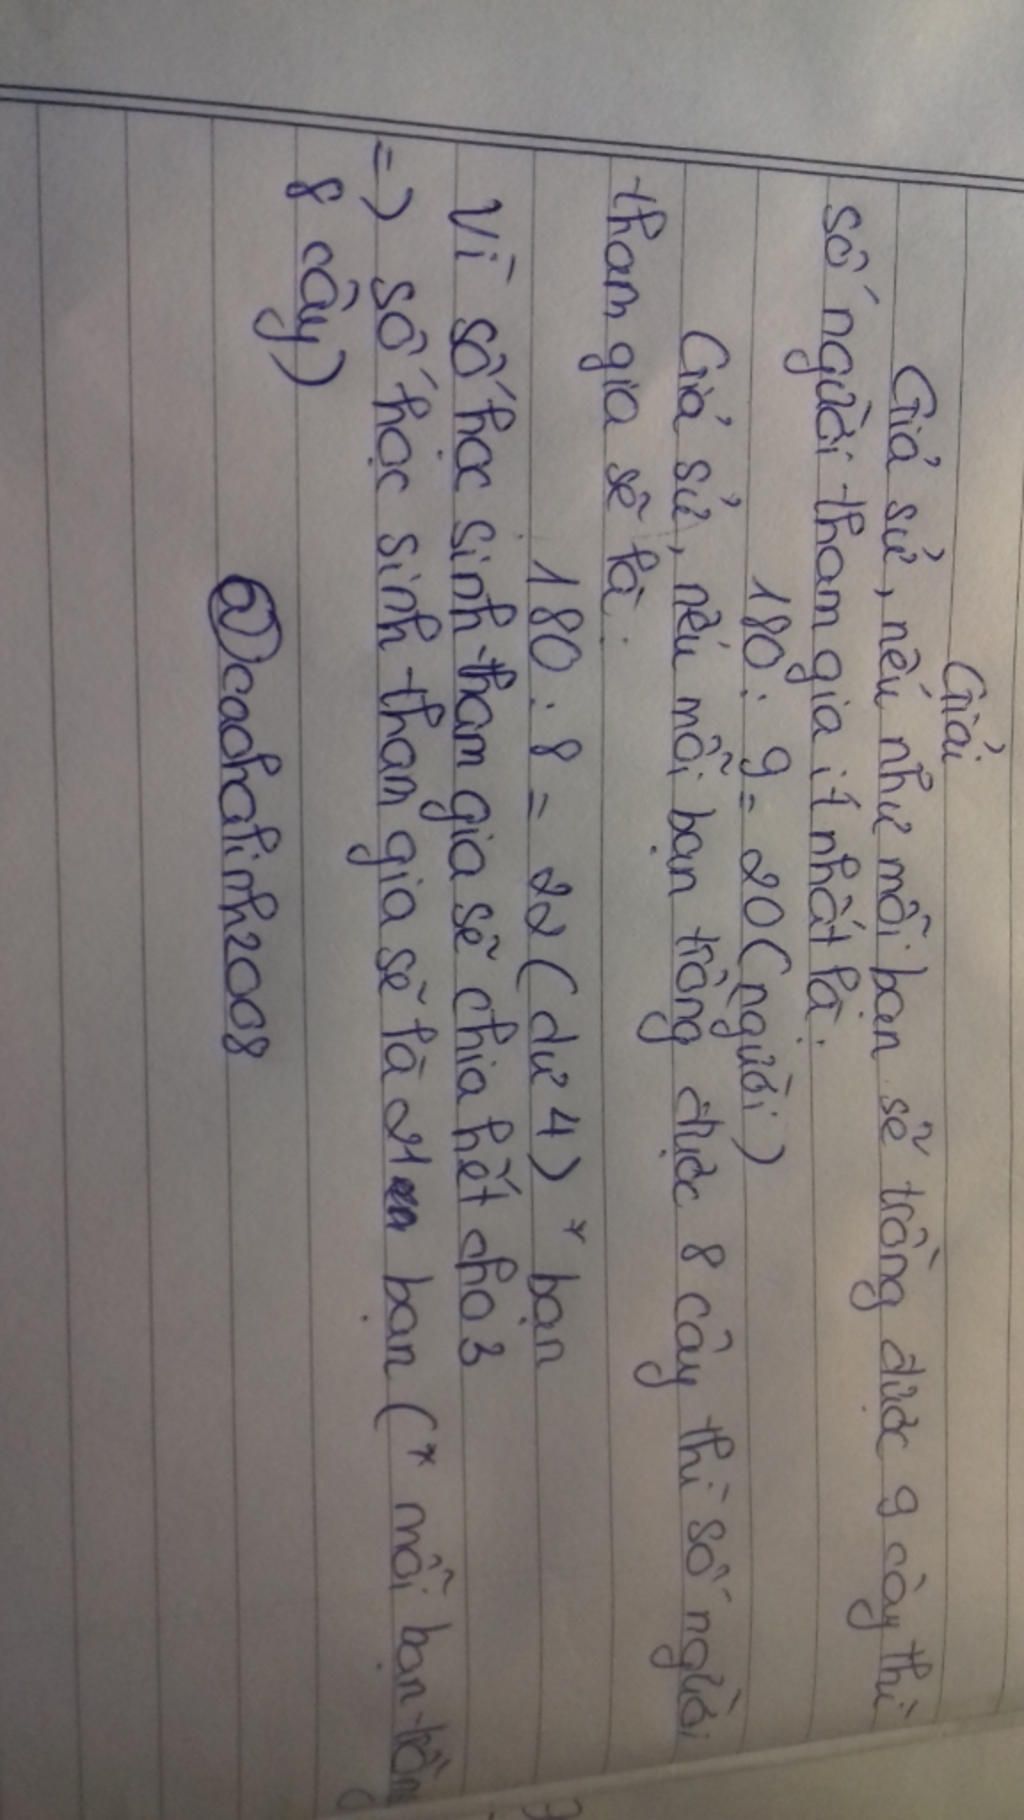 Giải
Giả sử, nếu như mỗi bạn sẽ trồng được 9 cây thì
số người tham gia ít nhất là:
180 : 9 = 20 (người)
Giả sử, nếu mỗi bạn trồng được 8 cây thì số người
tham gia sẽ là:
180 : 8 = 22 (dư 4) * bạn
Vì số học sinh tham gia sẽ chia hết cho 3
=) số học sinh tham gia sẽ là 21 bạn (* mỗi bạn trồng
8 cây)
@caohalinh2008